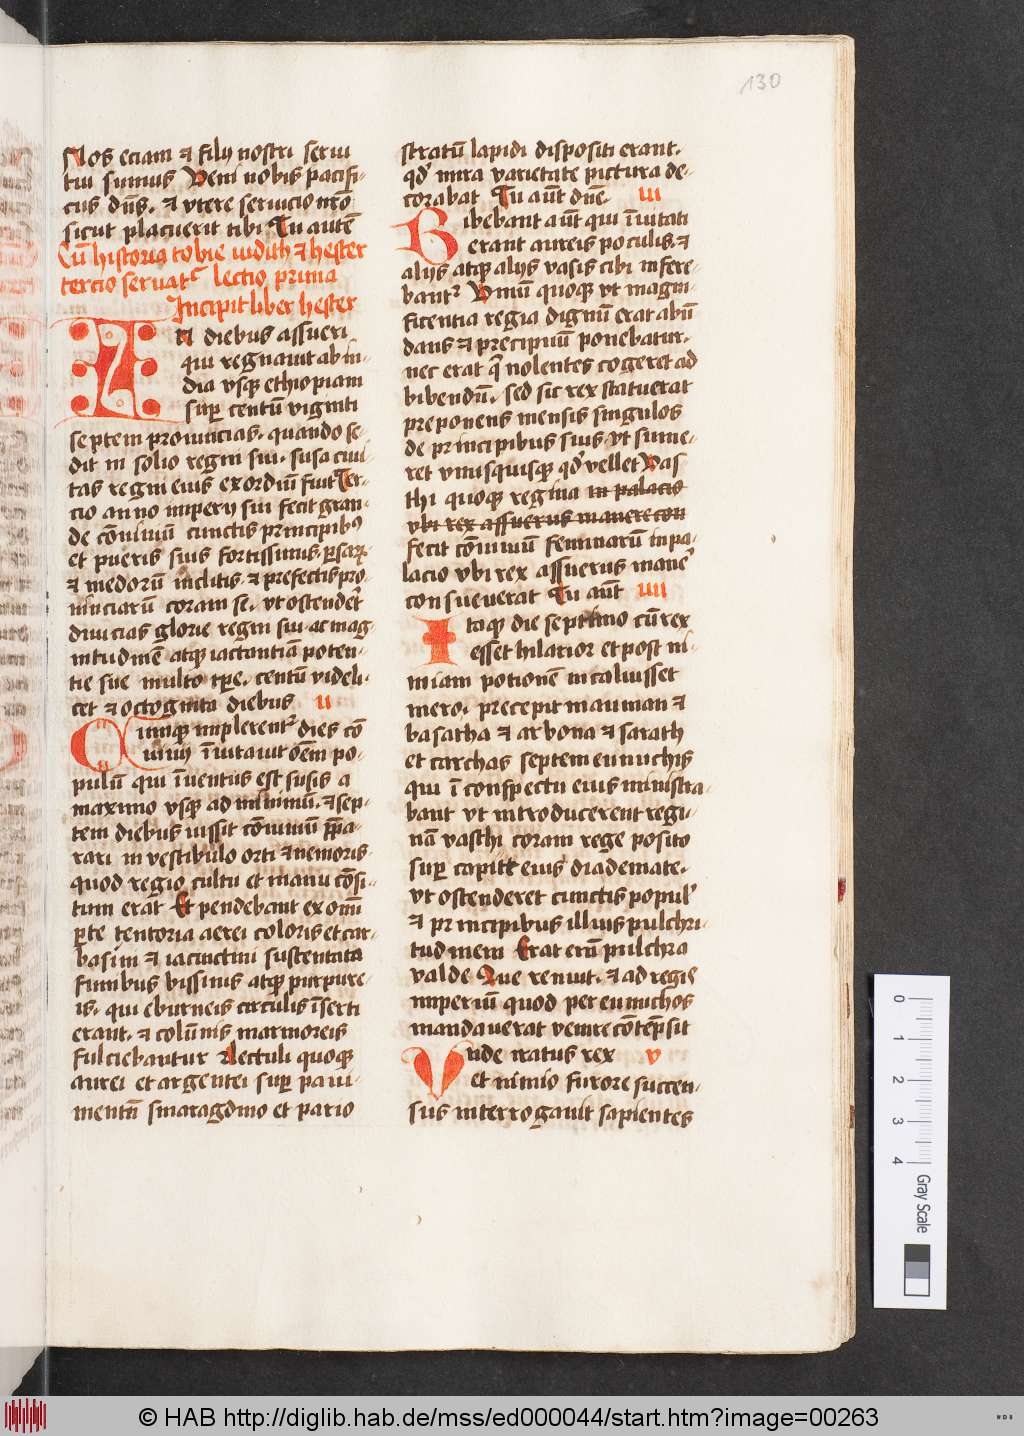 130
Nos eciam ⁊ filij nostri serui
tui sumus Veni nobis pacifi-
cus dn̄s. ⁊ vtere seruicio nr̄o
sicut placuerit tibi Tu autē
Cū historia tobie iudith ⁊ hester
tercio seruat᷑ lectio prima
Incipit liber hester
In diebus assueri
qui regnauit ab in-
dia vsqꝫ ethiopiam
suꝑ centū viginti
septem prouincias. quando se-
dit in solio regni sui. susa ciui-
tas regni eius exordiū fuit Ter-
cio anno imperij sui fecit gran-
de cōuiuiū cunctis principibꝰ
et pueris suis fortissimis ꝑsaꝝ
⁊ medorū inclitis ⁊ prefectis pro-
uinciarū coram se. vt ostendet᷑
diuicias glorie regni sui. ac mag-
nitudinē atqꝫ iactantiā poten-
tie sue multo tꝑe. centū videli-
cet ⁊ octoginta diebus ii
Cumqꝫ implerent᷑ dies cō
uiuij īuitauit oēm po-
pulū qui īuentus est susis a
maximo vsqꝫ ad minimū. ⁊ sep-
tem diebus iussit cōuiuiū p̄pa-
rari in vestibulo orti ⁊ nemoris
quod regio cultu et manu cōsi-
tum erat Et pendebant ex omī
ꝑte tentoria aerei coloris et car-
basini ⁊ iacinctini sustentata
funibus bissinis atqꝫ purpure-
is. qui eburneis circulis īserti
erant. ⁊ colūnis marmoreis
fulciebantur Lectuli quoqꝫ
aurei et argentei suꝑ paui-
mentū smaragdino et pario
stratū lapidi dispositi erant.
qd̓ mira varietate pictura de-
corabat Tu aūt dn̄e iii
Bibebant aūt qui īuitati
erant aureis poculis. ⁊
alijs atqꝫ alijs vasis cibi infere-
bant᷑ Vinū quoqꝫ vt magni-
ficentia regia dignū erat abū
dans ⁊ precipuū ponebatur.
nec erat q̓ nolentes cogeret ad
bibendū. sed sic rex statuerat
preponens mensis singulos
de principibus suis. vt sume-
ret vnusquisqꝫ qd̓ vellet Vas
thi quoqꝫ regina in palacio
vbi rex assuerus manere con
fecit cōuiuiū feminarū in pa-
lacio vbi rex assuerus mane᷑
consueuerat Tu aūt iiii
Itaqꝫ die septimo cū rex
esset hilarior et post ni-
miam potionē incaluisset
mero. precepit mauman ⁊
basatha ⁊ arbona ⁊ sarath
et carchas septem eunuchis
qui ī conspectu eius ministra-
bant vt introducerent regi-
nā vasthi coram rege posito
suꝑ capite eius diademate.
vt ostenderet cunctis popul᷑
⁊ principibus illius pulchri-
tudinem Erat em̄ pulchra
valde Que renuit. ⁊ ad regis
imperiū quod per eunuchos
mandauerat venire cōtēpsit
Unde iratus rex v
et nimio furore succen-
sus interrogauit sapientes
0 1 2 3 4
Gray Scale
© HAB http://diglib.hab.de/mss/ed000044/start.htm?image=00263